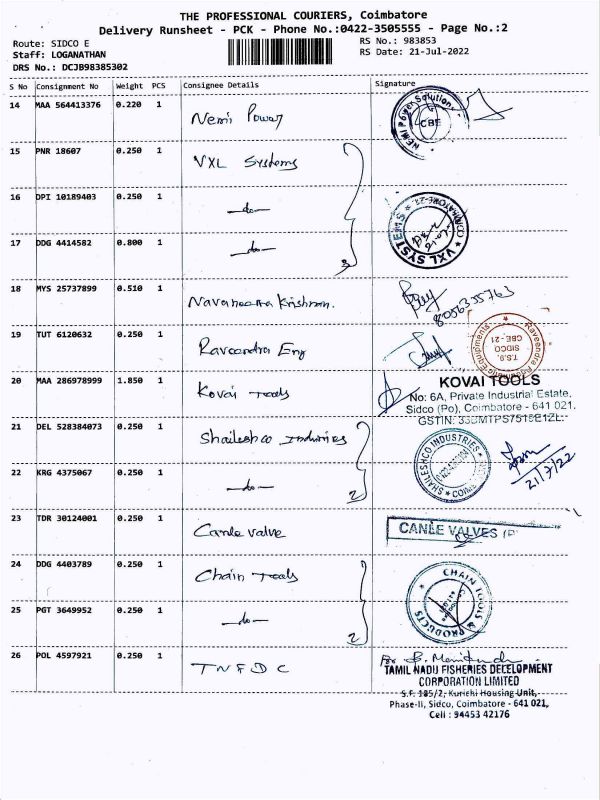 THE PROFESSIONAL COURIERS, Coimbatore
Delivery Runsheet - PCK - Phone No.:0422-3505555 - Page No.:2
Route: SIDCO E
RS No.: 983853
Staff: LOGANATHAN
RS Date: 21-Jul-2022
DRS No.: DCJB98385302
S No Consignment No Weight PCS Consignee Details Signature
14 MAA 564413376 0.220 1 Nemi Power
NEMI Power Solutions CBE
15 PNR 18607 0.250 1 VXL Systems
16 DPI 10189403 0.250 1 —do—
VXL SYSTEMS
17 DDG 4414582 0.800 1 —do—
3
18 MYS 25737899 0.510 1 Navaneetha Krishnan.
8056355763
19 TUT 6120632 0.250 1 Raveendra Eng
T.S.9, SIDCO CBE - 21
20 MAA 286978999 1.850 1 Kovai Tools
KOVAI TOOLS
No: 6A, Private Industrial Estate,
Sidco (Po), Coimbatore - 641 021.
21 DEL 528384073 0.250 1 Shaileshco Industries
SHAILESHCO INDUSTRIES
21/7/22
22 KRG 4375067 0.250 1 —do—
2
23 TDR 30124001 0.250 1 Canle valve
CANLE VALVES (P
24 DDG 4403789 0.250 1 Chain Tools
CHAIN TOOLS & PRODUCTS
25 PGT 3649952 0.250 1 —do—
2
26 POL 4597921 0.250 1 TNFDC
For
TAMIL NADU FISHERIES DEVELOPMENT
CORPORATION LIMITED
S.F. 185/2, Kurichi Housing Unit,
Phase-II, Sidco, Coimbatore - 641 021,
Cell : 94453 42176